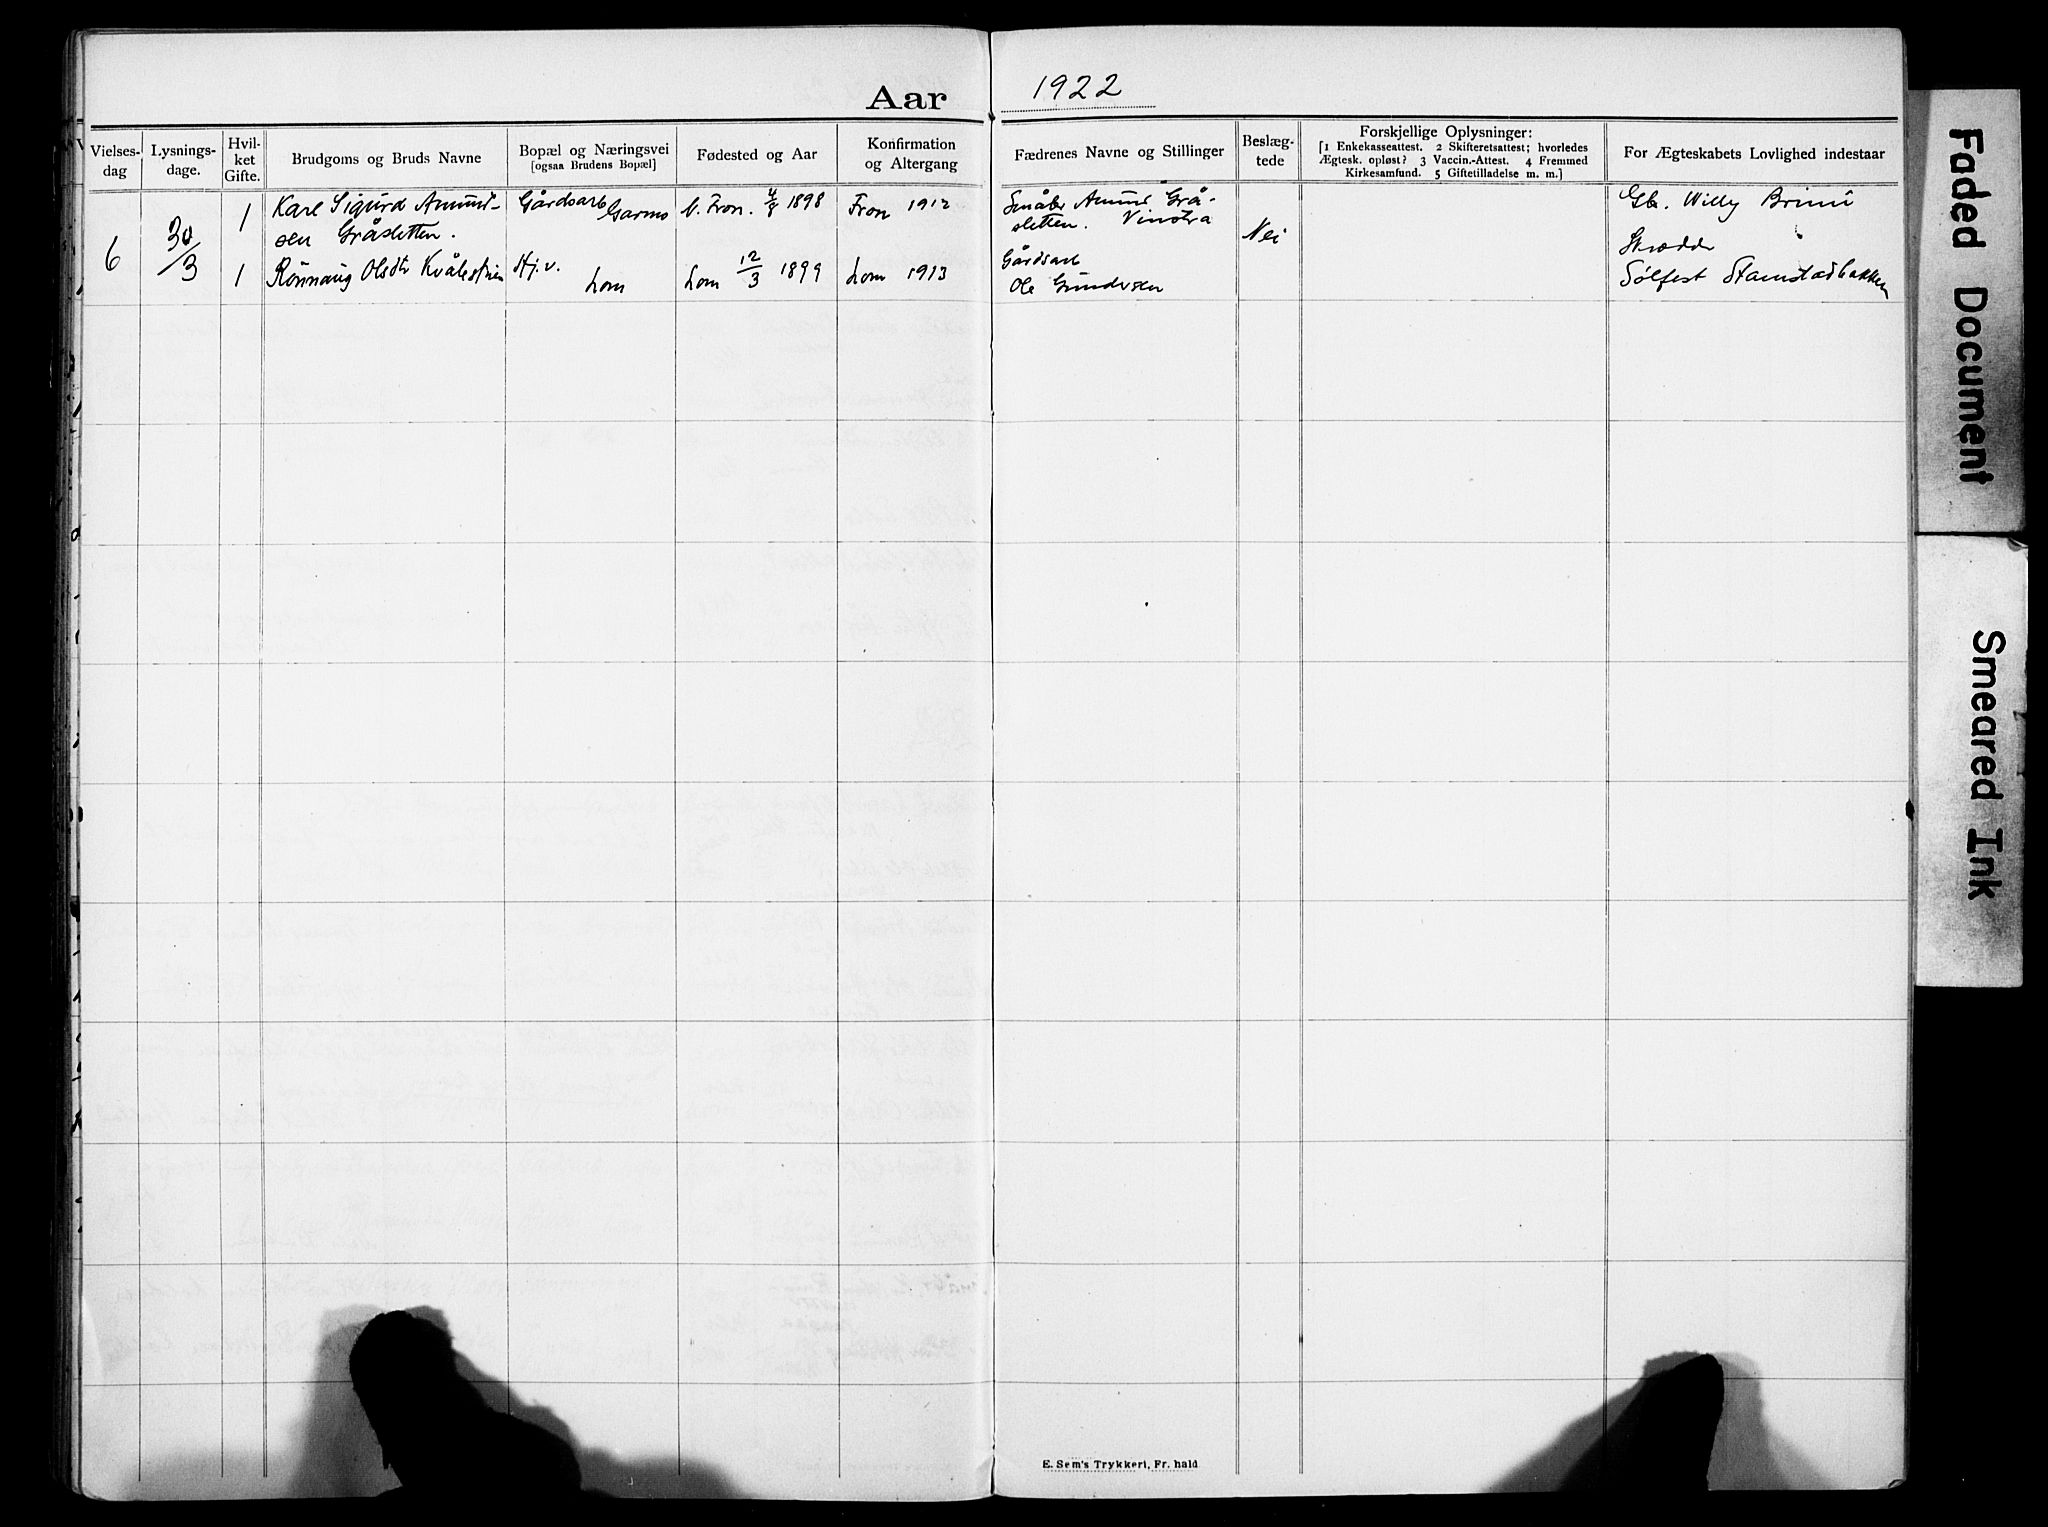 Aar 1922
Vielses-
dag
Lysnings-
dage.
Hvil-
ket
Gifte.
Brudgoms og Bruds Navne
Bopæl og Næringsvei
[ogsaa Brudens Bopæl]
Fødested og Aar
Konfirmation
og Altergang
Fædrenes Navne og Stillinger
Beslæg-
tede
Forskjellige Oplysninger:
[1 Enkekasseattest. 2 Skifteretsattest; hvorledes
Ægtesk. opløst? 3 Vaccin.-Attest. 4 Fremmed
Kirkesamfund. 5 Giftetilladelse m. m.]
For Ægteskabets Lovlighed indestaar
6
30/3
1
Karl Sigurd Amund-
sen Gråsletten.
Gårdsarb
Garmo
N. Fron. 4/8 1898
Fron 1912
Småbr Amund Grå-
sletten. Vinstra
Nei
Gb. Willy Brimi
1
Rönnaug Olsdtr Kvålestuen
Hj.v.
Lom
Lom 12/3 1899
Lom 1913
Gårdsarb
Ole Gundersen
Skrædder
Sølfest Stamstadbakken
E. Sem's Trykkeri, Fr.hald
Faded Document
Smeared Ink